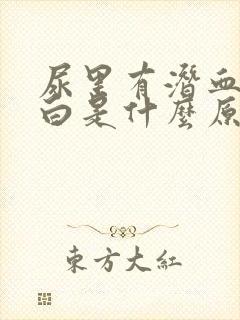 尿里有潜血
白是什麼原
東方大紅